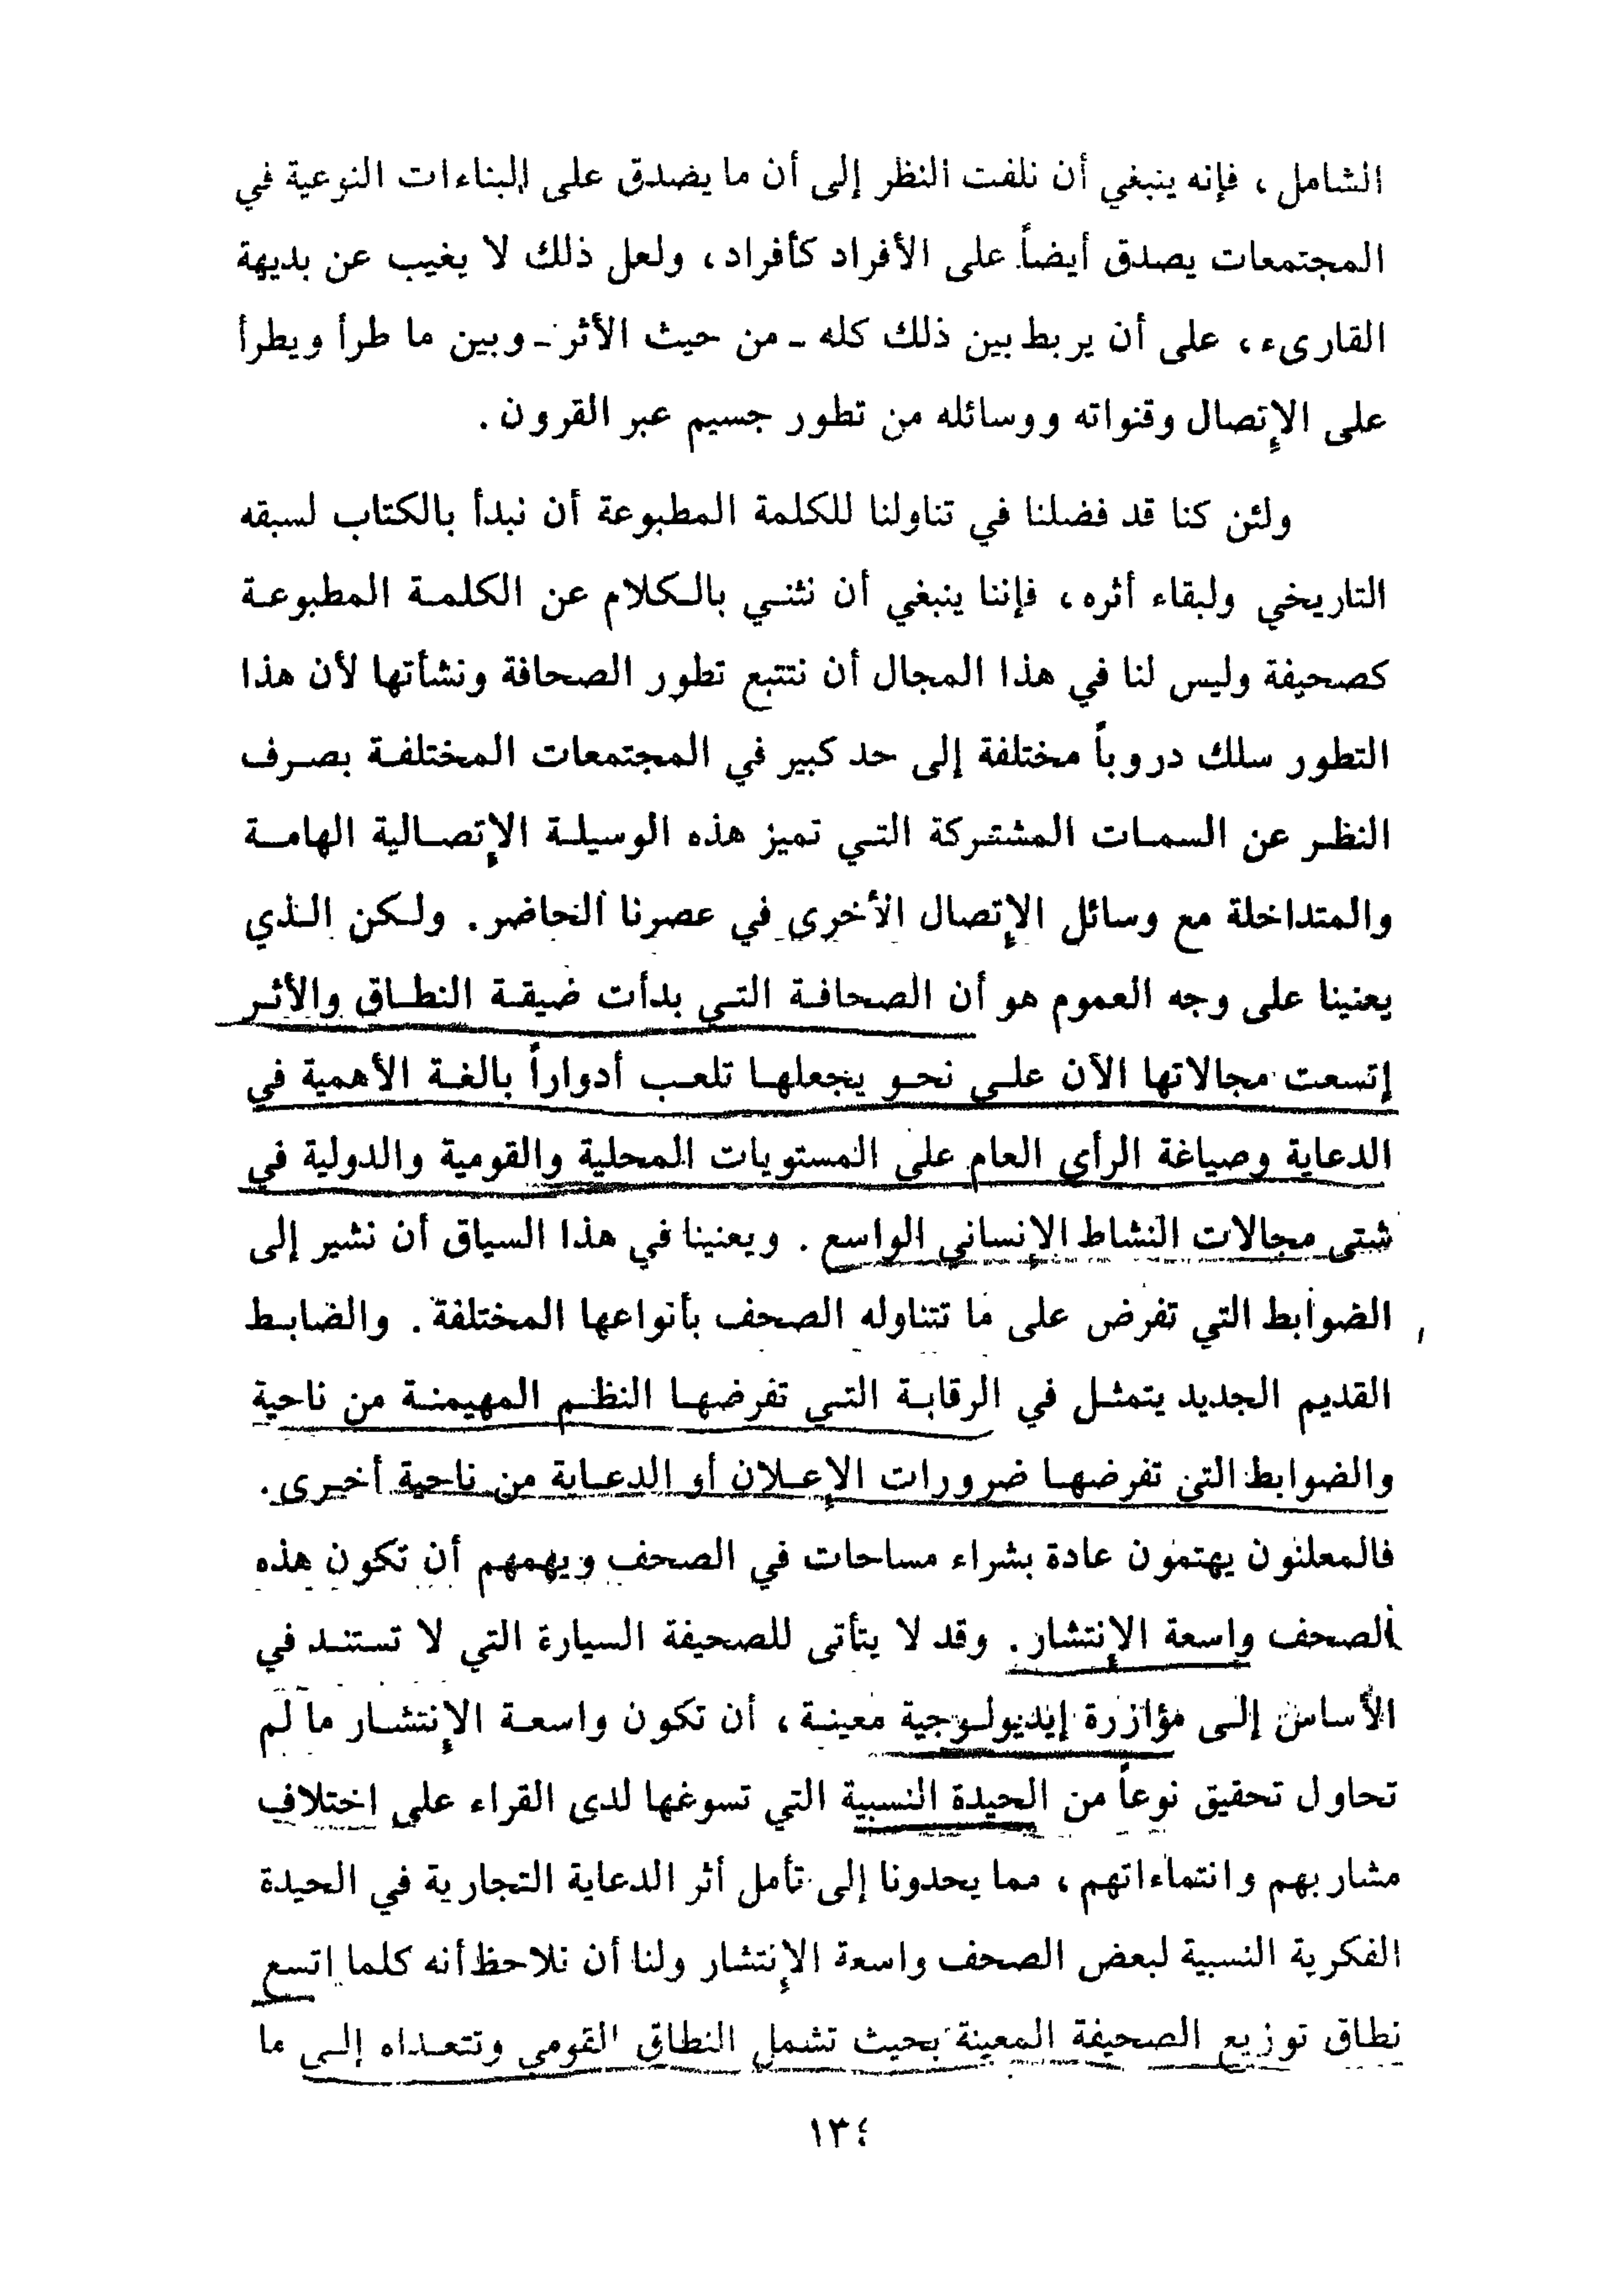 الشامل ، فإنه ينبغي أن نلفت النظر إلى أن ما يصدق على البناءات النوعية في
المجتمعات يصدق أيضاً على الأفراد كأفراد ، ولعل ذلك لا يغيب عن بديهة
القارىء ، على أن يربط بين ذلك كله - من حيث الأثر - وبين ما طرأ ويطرأ
على الإتصال وقنواته ووسائله من تطور جسيم عبر القرون .
ولئن كنا قد فضلنا في تناولنا للكلمة المطبوعة أن نبدأ بالكتاب لسبقه
التاريخي ولبقاء أثره ، فإننا ينبغي أن نثني بالكلام عن الكلمة المطبوعة
كصحيفة وليس لنا في هذا المجال أن نتتبع تطور الصحافة ونشأتها لأن هذا
التطور سلك دروباً مختلفة إلى حد كبير في المجتمعات المختلفة بصرف
النظر عن السمات المشتركة التي تميز هذه الوسيلة الإتصالية الهامة
والمتداخلة مع وسائل الإتصال الأخرى في عصرنا الحاضر . ولكن الذي
يعنينا على وجه العموم هو أن الصحافة التي بدأت ضيقة النطاق والأثر
إتسعت مجالاتها الآن على نحو يجعلها تلعب أدواراً بالغة الأهمية في
الدعاية وصياغة الرأي العام على المستويات المحلية والقومية والدولية في
شتى مجالات النشاط الإنساني الواسع . ويعنينا في هذا السياق أن نشير إلى
الضوابط التي تفرض على ما تتناوله الصحف بأنواعها المختلفة . والضابط
القديم الجديد يتمثل في الرقابة التي تفرضها النظم المهيمنة من ناحية
والضوابط التي تفرضها ضرورات الإعلان أو الدعاية من ناحية أخرى .
فالمعلنون يهتمون عادة بشراء مساحات في الصحف ويهمهم أن تكون هذه
الصحف واسعة الإنتشار . وقد لا يتأتى للصحيفة السيارة التي لا تستند في
الأساس إلى مؤازرة إيديولوجية معينة ، أن تكون واسعة الإنتشار ما لم
تحاول تحقيق نوعاً من الحيدة النسبية التي تسوغها لدى القراء على اختلاف
مشاربهم وانتماءاتهم ، مما يحدونا إلى تأمل أثر الدعاية التجارية في الحيدة
الفكرية النسبية لبعض الصحف واسعة الإنتشار ولنا أن نلاحظ أنه كلما اتسع
نطاق توزيع الصحيفة المعينة بحيث تشمل النطاق القومي وتتعداه إلى ما
١٣٤